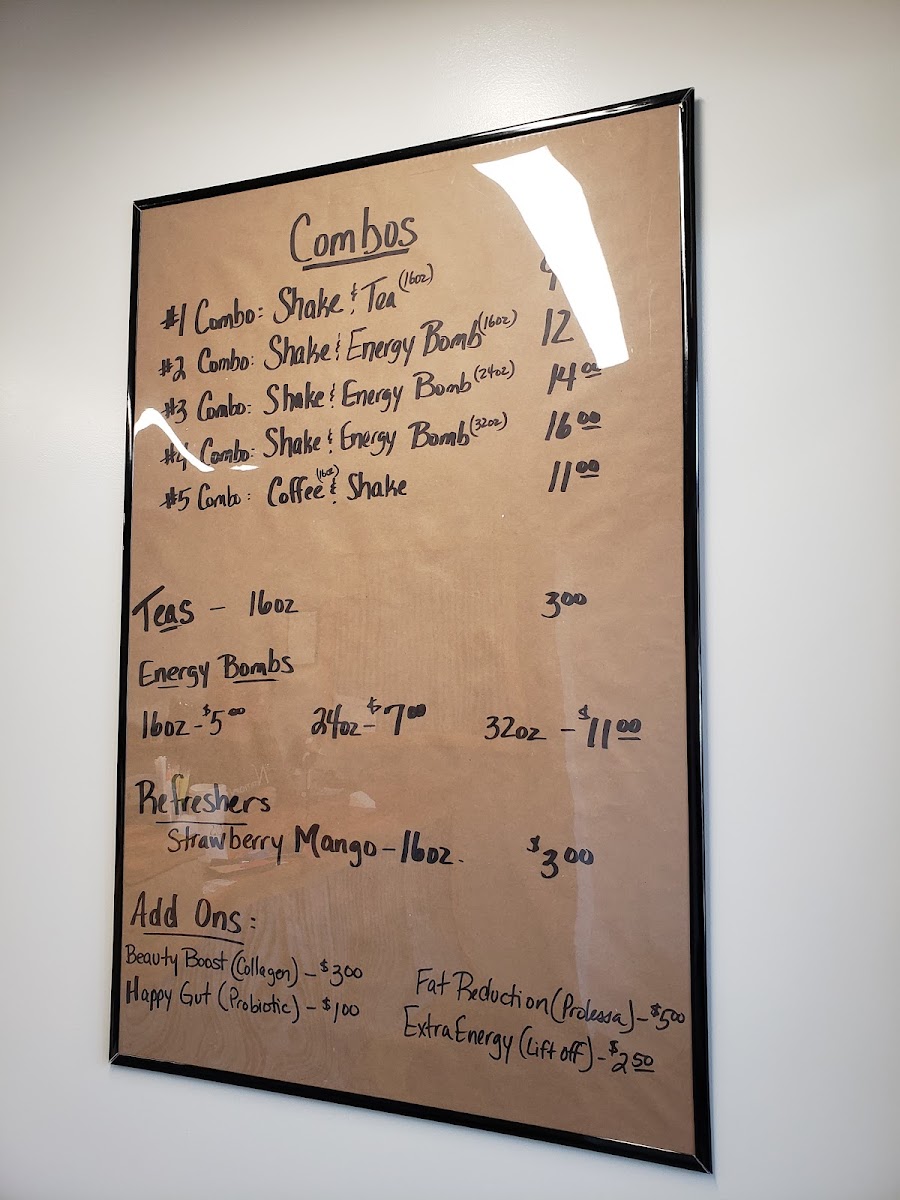 Combos
#1 Combo: Shake & Tea (16oz)
#2 Combo: Shake & Energy Bomb (16oz) 12
#3 Combo: Shake & Energy Bomb (24oz) 14 00
#4 Combo: Shake & Energy Bomb (32oz) 16 00
#5 Combo: Coffee (16oz) & Shake 11 00
Teas - 16oz 3 00
Energy Bombs
16oz - $5 00 24oz - $7 00 32oz - $11 00
Refreshers
Strawberry Mango - 16oz. $3 00
Add Ons:
Beauty Boost (Collagen) - $3 00
Happy Gut (Probiotic) - $1 00
Fat Reduction (Prolessa) - $5 00
Extra Energy (Lift off) - $2 50